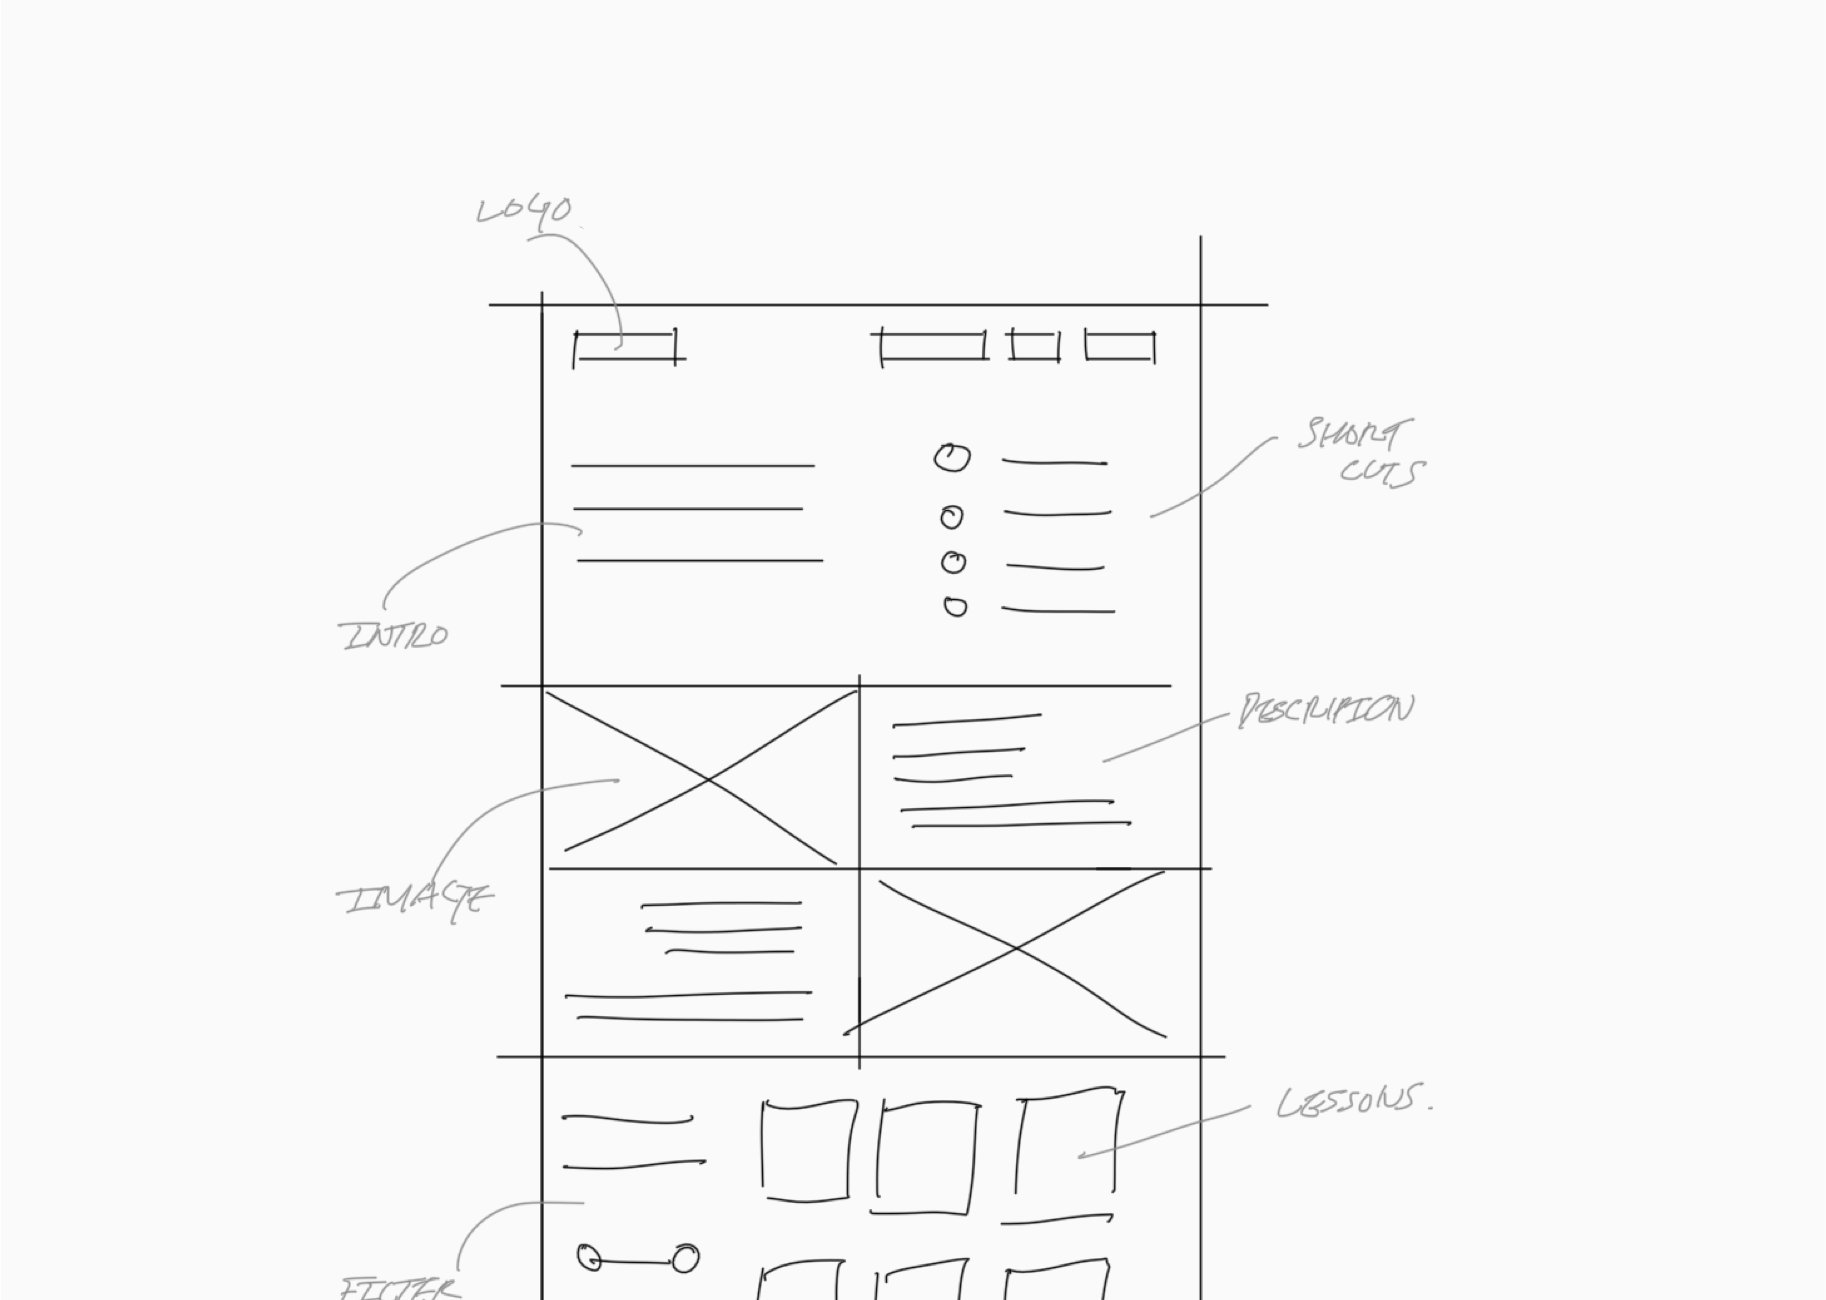 LOGO
SHORT
CUTS
INTRO
DESCRIPTION
IMAGE
LESSONS.
FILTER